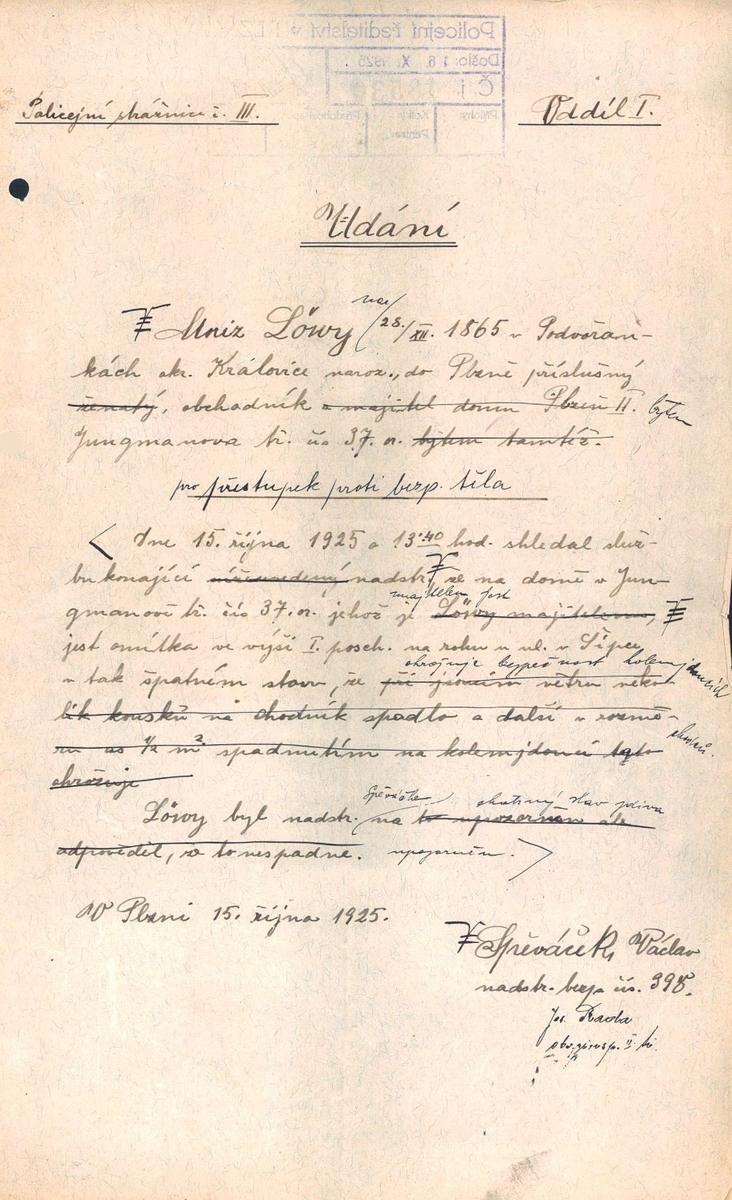 Policejní ředitelství v PLZ
Došlo: 1 6. X. 1925
Č. j.
Přílohy
Policejní strážnice č. III.
Oddíl I.
Udání
nar.
Moriz Löwy 28./XII. 1865 v Podvořan-
kách okr. Kralovice naroz., do Plzně příslušný
ženatý, obchodník a majitel domu Plzeň II. bytem
Jungmanova tř. čís 37. or. bytem tamtéž.
pro přestupek proti bezp. těla
Dne 15. října 1925 o 13:40 hod. shledal služ-
bu konající nadstr. že na domě v Jun-
gmanově tř. čís 37. or. jehož je Löwy majitelem,
majitelem jest
jest omítka ve výši I. posch. na rohu u ul. v Šipce
ohrožuje bezpečnost kolemjdoucích
v tak špatném stavu, že při jasném větru něko-
lik kousků na chodník spadlo a další v rozmě-
ru as ½ m² spadnutím na kolemjdoucí tato
ohrožuje
Spěváčkem
Löwy byl nadstr. na to upozorněn ale
odpověděl, že to nespadne. upozorněn.
V Plzni 15. října 1925.
Spěváček Václav
nadstr. bezp. čís. 398.
Jos. Rada